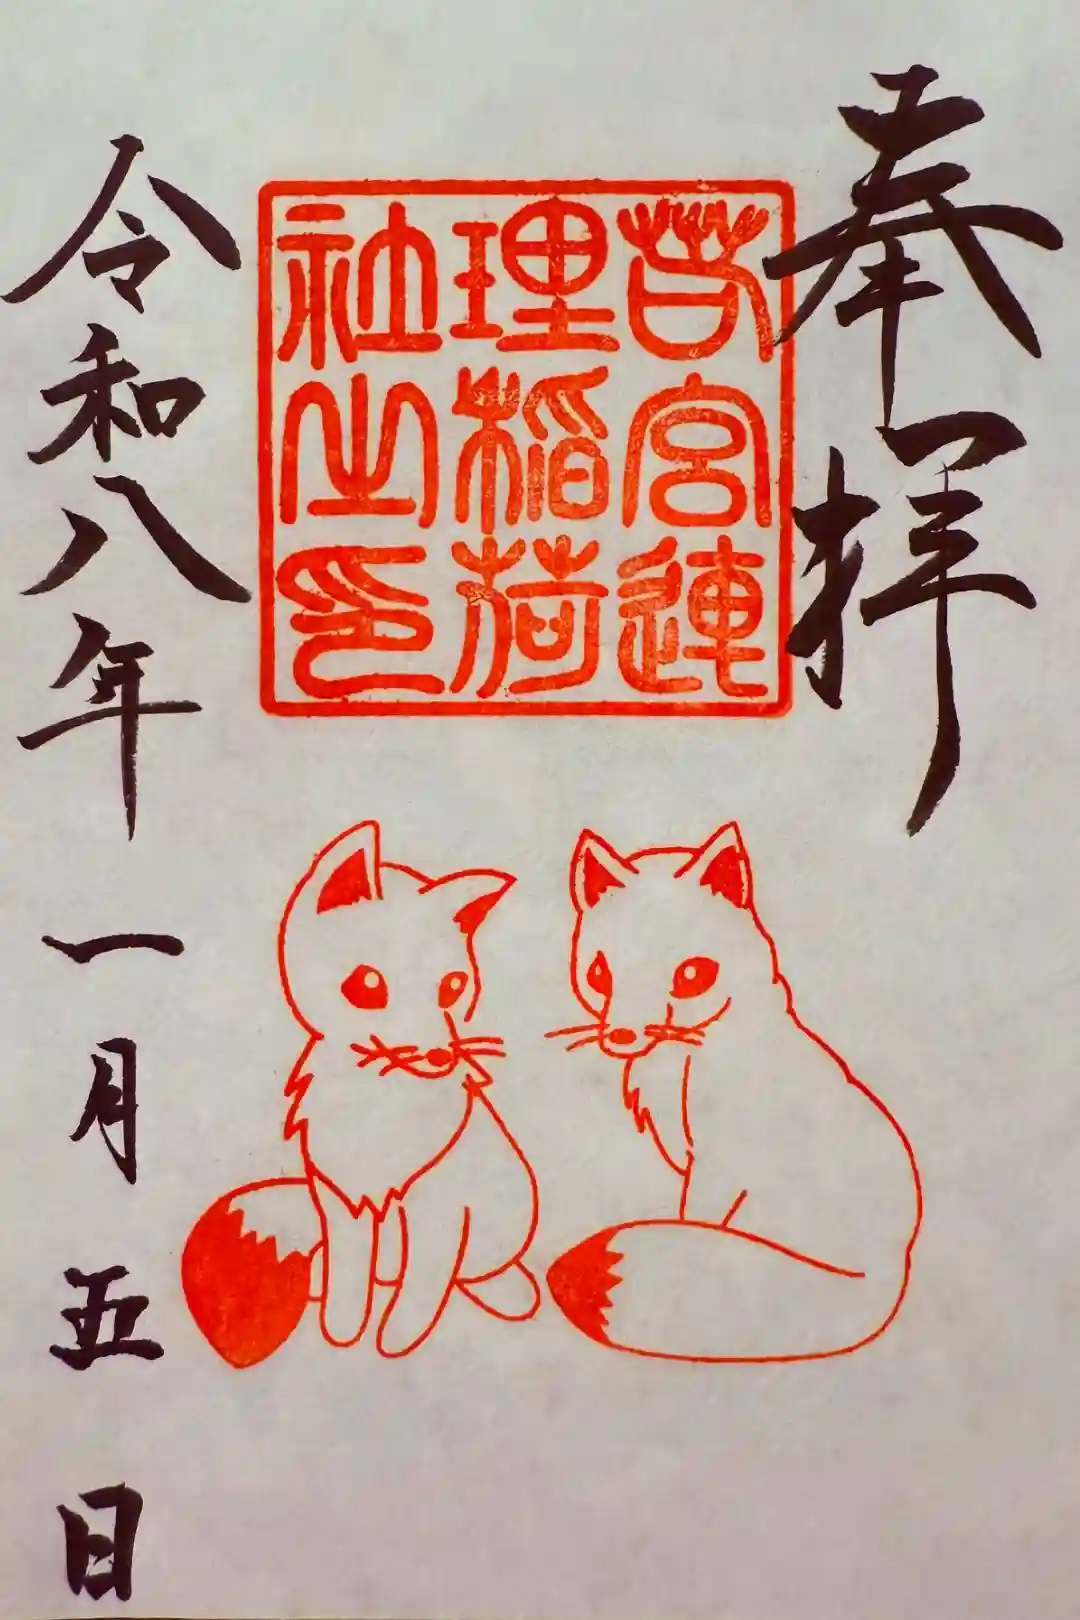 奉拝
若宮連
理稲荷
社之印
令和八年一月五日